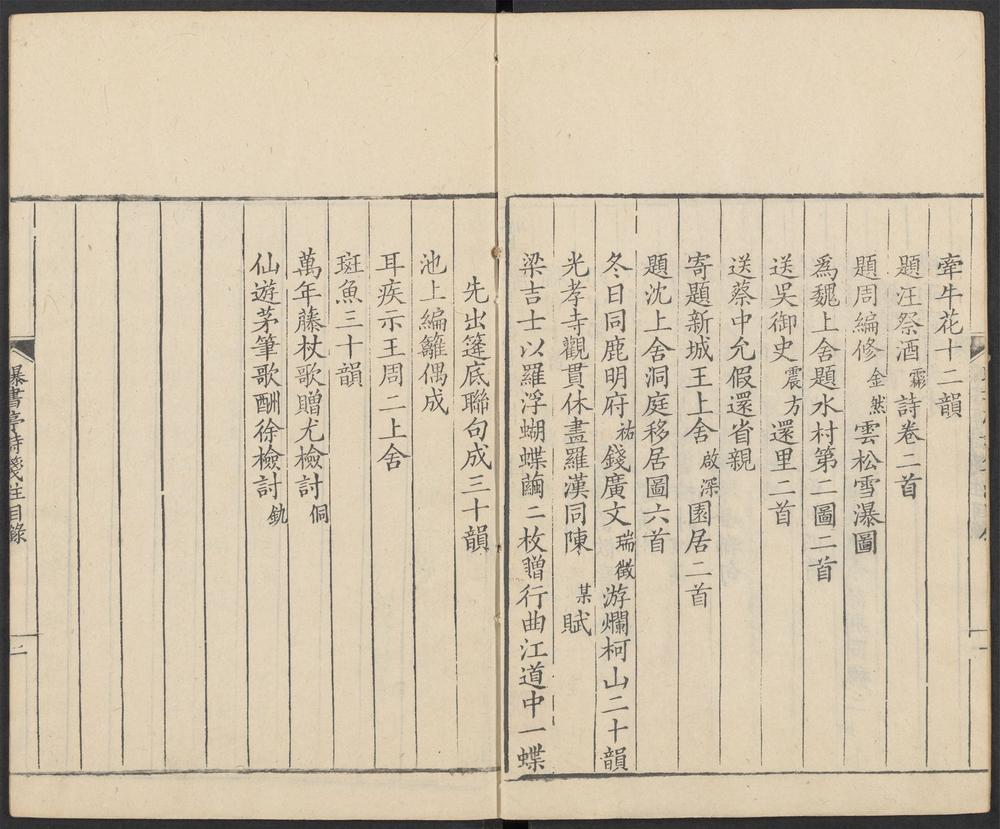 牽牛花十二韻
題汪祭酒霦詩卷二首
題周編修金然雲松雪瀑圖
爲魏上舍題水村第二圖二首
送吳御史震方還里二首
送蔡中允假還省親
寄題新城王上舍啟深園居二首
題沈上舍洞庭移居圖六首
冬日同鹿明府祐錢廣文瑞徵游爛柯山二十韻
光孝寺觀貫休畫羅漢同陳某賦
梁吉士以羅浮蝴蝶繭二枚贈行曲江道中一蝶
先出篷底聯句成三十韻
池上編籬偶成
耳疾示王周二上舍
斑魚三十韻
萬年藤杖歌贈尤檢討侗
仙遊茅筆歌酬徐檢討釚
曝書亭詩箋注目錄
二